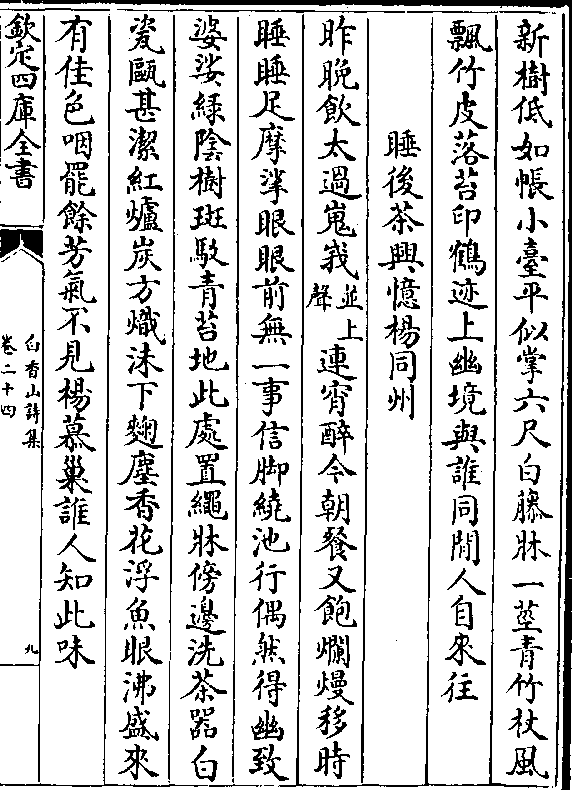 新樹低如帳小臺平似掌六尺白藤牀一莖青竹杖風
飄竹皮落苔印鶴迹上幽境與誰同閒人自來往
睡後茶興憶楊同州
昨晚飲太過嵬峩並上聲連宵醉今朝餐又飽爛熳移時
睡睡足摩挲眼眼前無一事信脚繞池行偶然得幽致
婆娑緑陰樹斑駮青苔地此處置繩牀傍邊洗茶器白
瓷甌甚潔紅爐炭方熾沫下麴塵香花浮魚眼沸盛來
有佳色咽罷餘芳氣不見楊慕巢誰人知此味
欽定四庫全書
白香山詩集
卷二十四
九